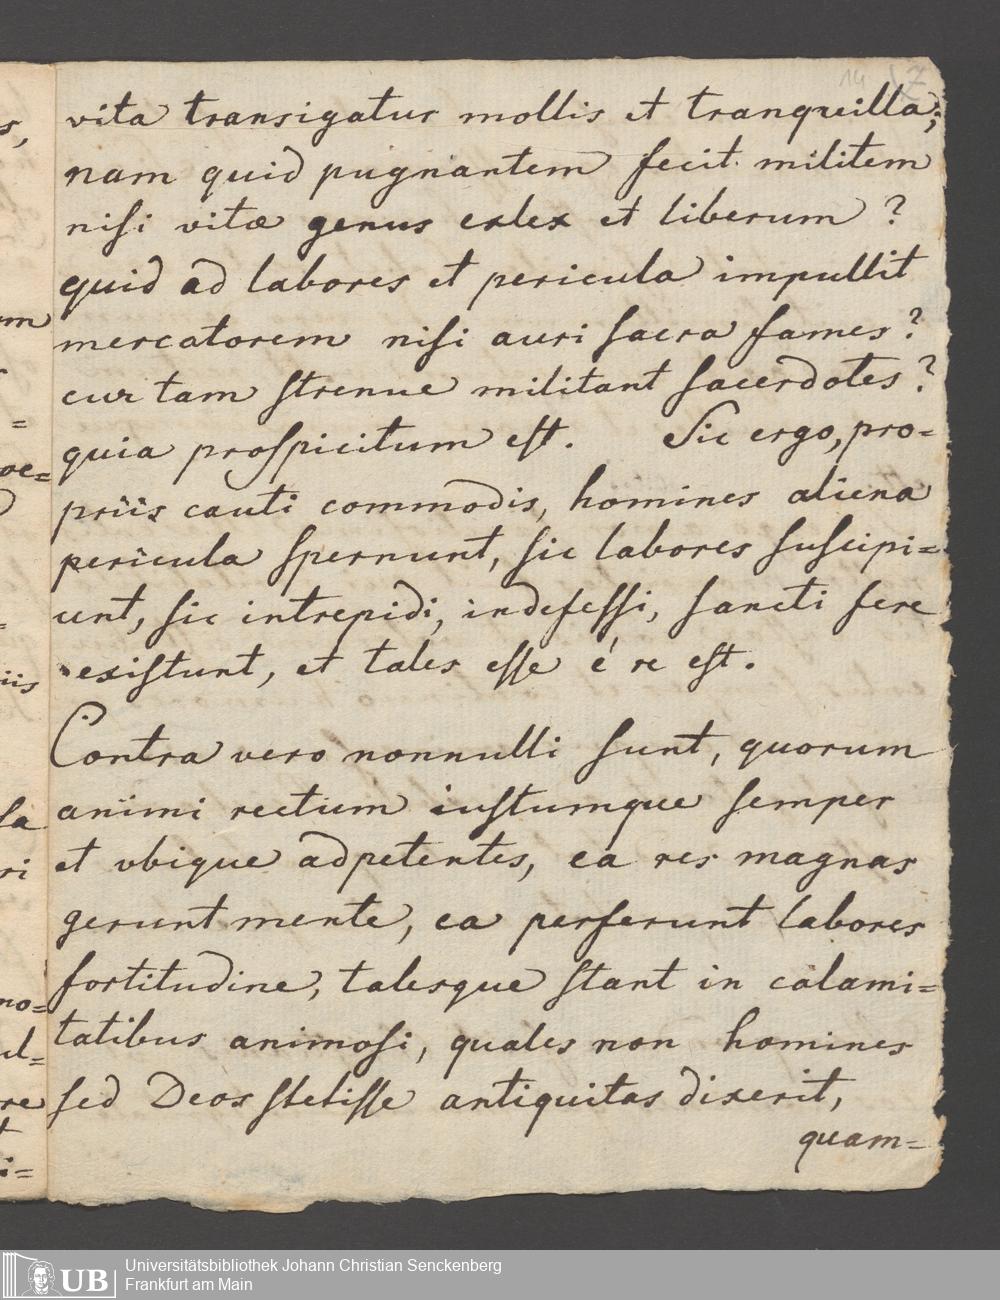 14 17
vita transigatur mollis et tranquilla;
nam quid pugnantem fecit militem
nisi vitæ genus exlex et liberum ?
quid ad labores et pericula impullit
mercatorem nisi auri sacra fames ?
cur tam strenue militant sacerdotes ?
quia prospicitum est. Sic ergo, pro-
priis cauti commodis, homines aliena
pericula spernunt, sic labores suscipi=
unt, sic intrepidi, indefessi, sancti fere
existunt, et tales esse é re est.
Contra vero nonnulli sunt, quorum
animi rectum iustumque semper
et vbique adpetentes, ea res magnas
gerunt mente, ea perferunt labores
fortitudine, talesque stant in calami=
tatibus animosi, quales non homines
sed Deos stetisse antiquitas dixerit,
quam=
UB
Universitätsbibliothek Johann Christian Senckenberg
Frankfurt am Main